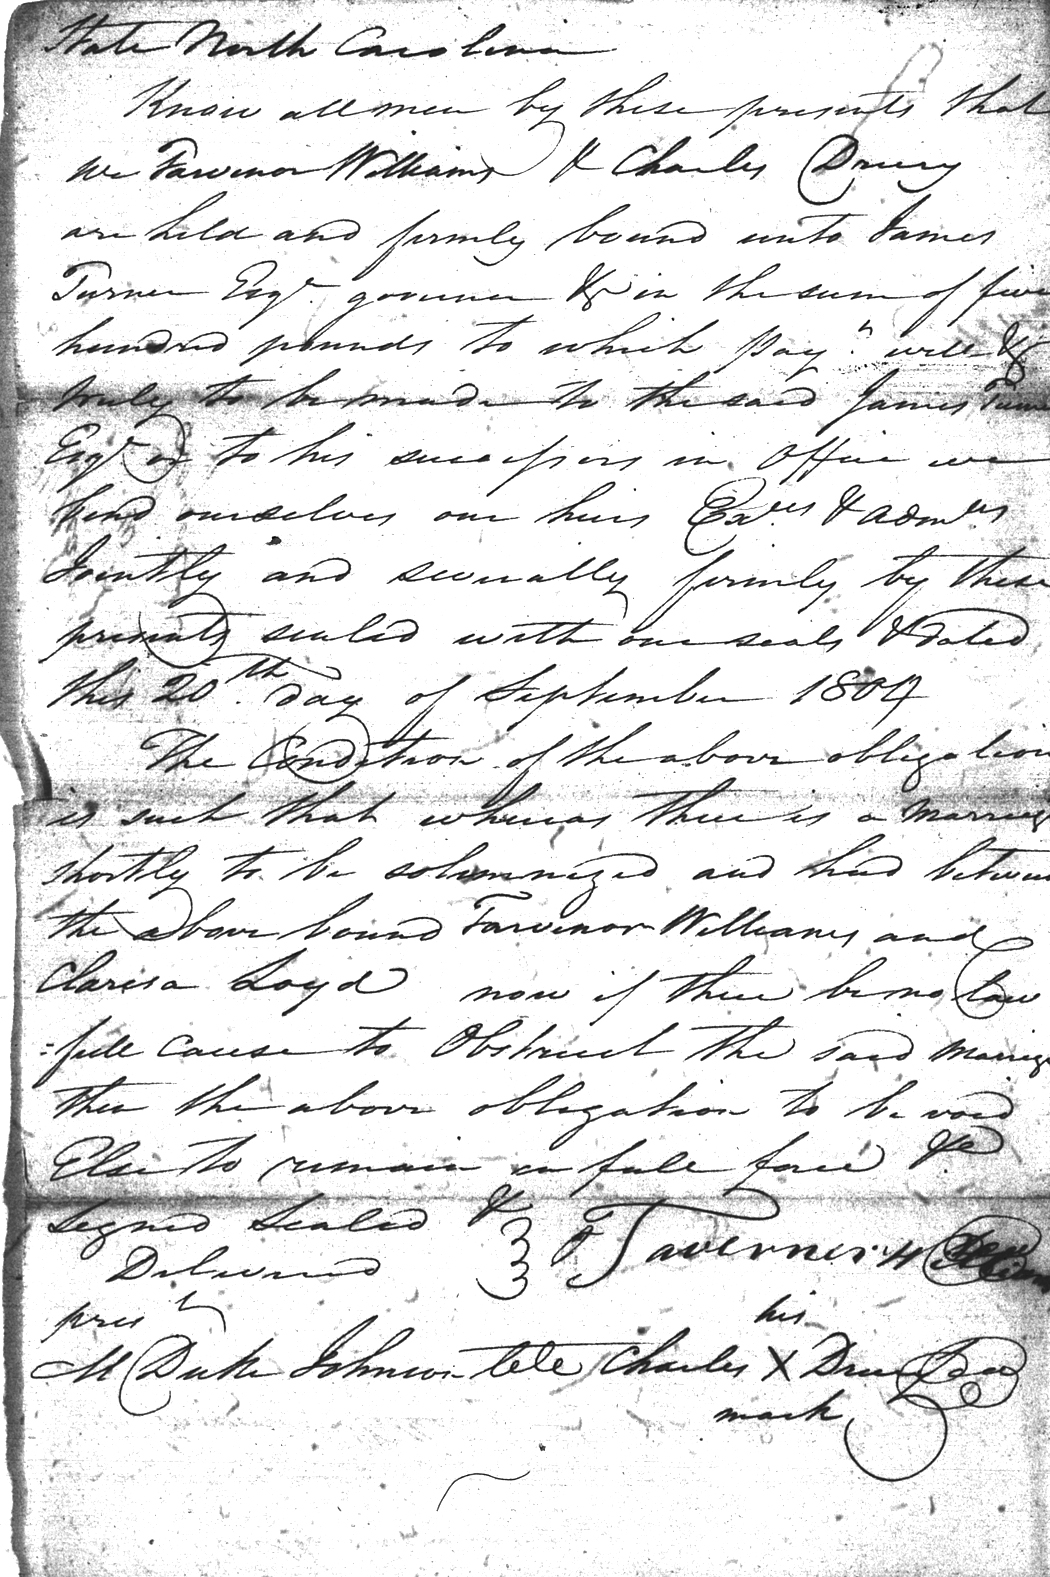 State North Carolina
Know all men by these presents that
we Tarvenor Williams & Charles Drury
are held and firmly bound unto James
Turner Esqr. governer &c in the sum of five
hundred pounds to which Paym. well &
truly to be made to the said James Turner
Esqr. and to his successors in Office we
bind ourselves our heirs Exrs & admrs
Jointly and severally firmly by these
presents sealed with our seals & dated
this 20th day of September 1804
The Condition of the above obligation
is such that whereas there is a Marriage
shortly to be solemnized and had between
the above bound Tarvenor Williams and
Clarisa Loyd now if there be no law
=full cause to Obstruct the said Marriage
then the above obligation to be void
Else to remain in full force &c
Signed Sealed &
Delivered Taverner
pres his
M Duke Johnson Charles X Drury Seal
mark